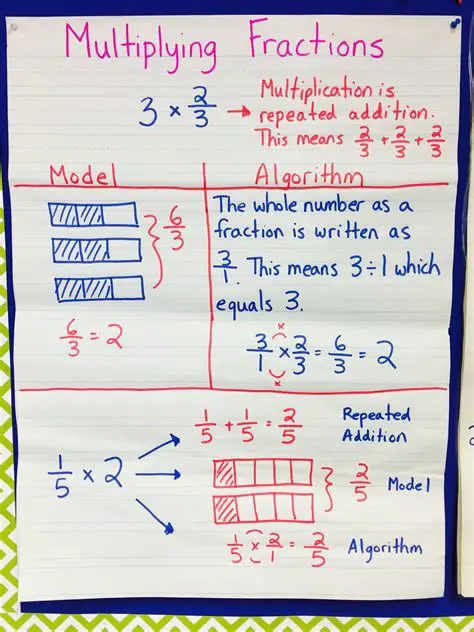 Multiplying Fractions
3 × 2/3 → Multiplication is
repeated addition.
This means 2/3 + 2/3 + 2/3
Model
6/3
6/3 = 2
Algorithm
The whole number as a
fraction is written as
3/1. This means 3÷1 which
equals 3.
3/1 × 2/3 = 6/3 = 2
x
x
1/5 × 2
1/5 + 1/5 = 2/5 Repeated
Addition
2/5 Model
1/5 × 2/1 = 2/5 Algorithm